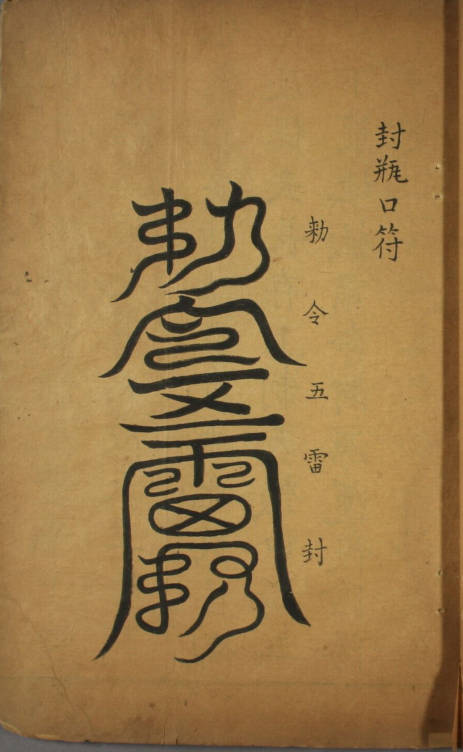 封瓶口符
勅令五雷封
勅令五雷封